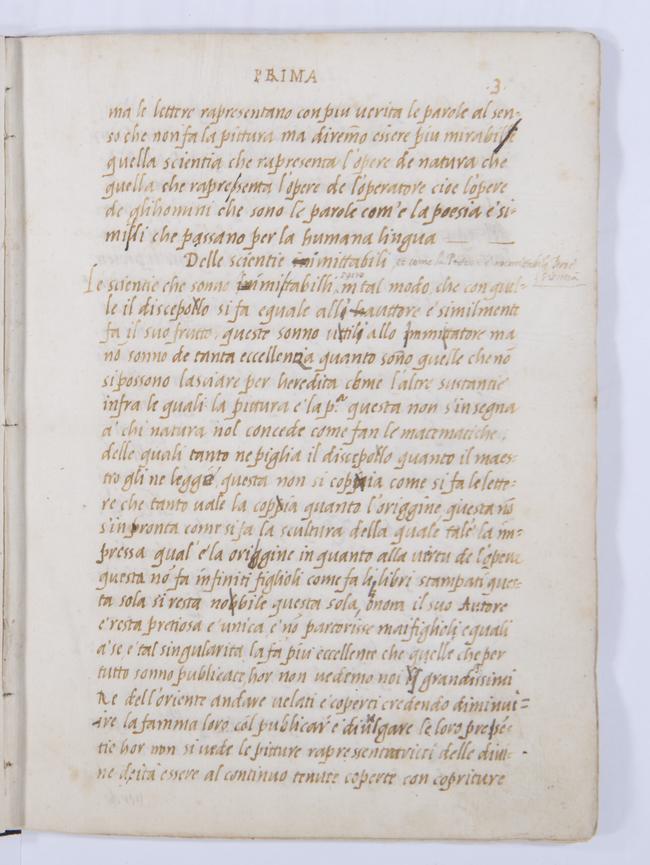 PRIMA
·3·
ma le lettere rapresentano con piu uerita le parole al sen-
so che non fa la pittura ma diremo essere piu mirabile
quella scientia che rapresenta l'opere de natura che
quella che rapresenta l'opere de l'operatore cioe l'opere
de glihomini che sono le parole com'e la poesia e si-
milli che passano per la humana lingua
Delle scientie imittabili et come la
Le scientie che sonno imitabilli, in tal modo, che con quel-
le il discepollo si fa equale all' auttore e similment
fa il suo frutto, queste sonno utili allo immitatore ma
nō sonno de tanta eccellentia quanto sono quelle che nō
si possono lasciare per heredita come l'altre sustantie
infra le quali la pittura e la p.ª questa non s'insegna
a' chi natura nol concede come fan le matematiche,
delle quali tanto ne piglia il discepollo quanto il maes-
tro gli ne legge, questa non si coppia come si fa le lette-
re che tanto uale la coppia quanto l'origgine questa nō
s'inpronta come si fa la scultura della quale tal'e la im-
pressa qual'e la origgine in quanto alla uirtu de l'opera
questa nō fa infiniti figlioli come fa li libri stampati ques-
ta sola si resta nobbile questa sola, onora il suo Autore
e' resta pretiosa e' unica e' nō partorisse mai figlioli equali
a' se e' tal singularita la fa piu eccellente che quelle che per
tutto sonno publicate, hor non uedemo noi grandissimi
Re dell'oriente andare uelati e' coperti credendo diminui-
ire la famma loro col publicar' e' diuulgare le loro presē-
tie hor non si uede le pitture rapressentatrici delle diui-
ne deita essere al continuo tenute coperte con copriture